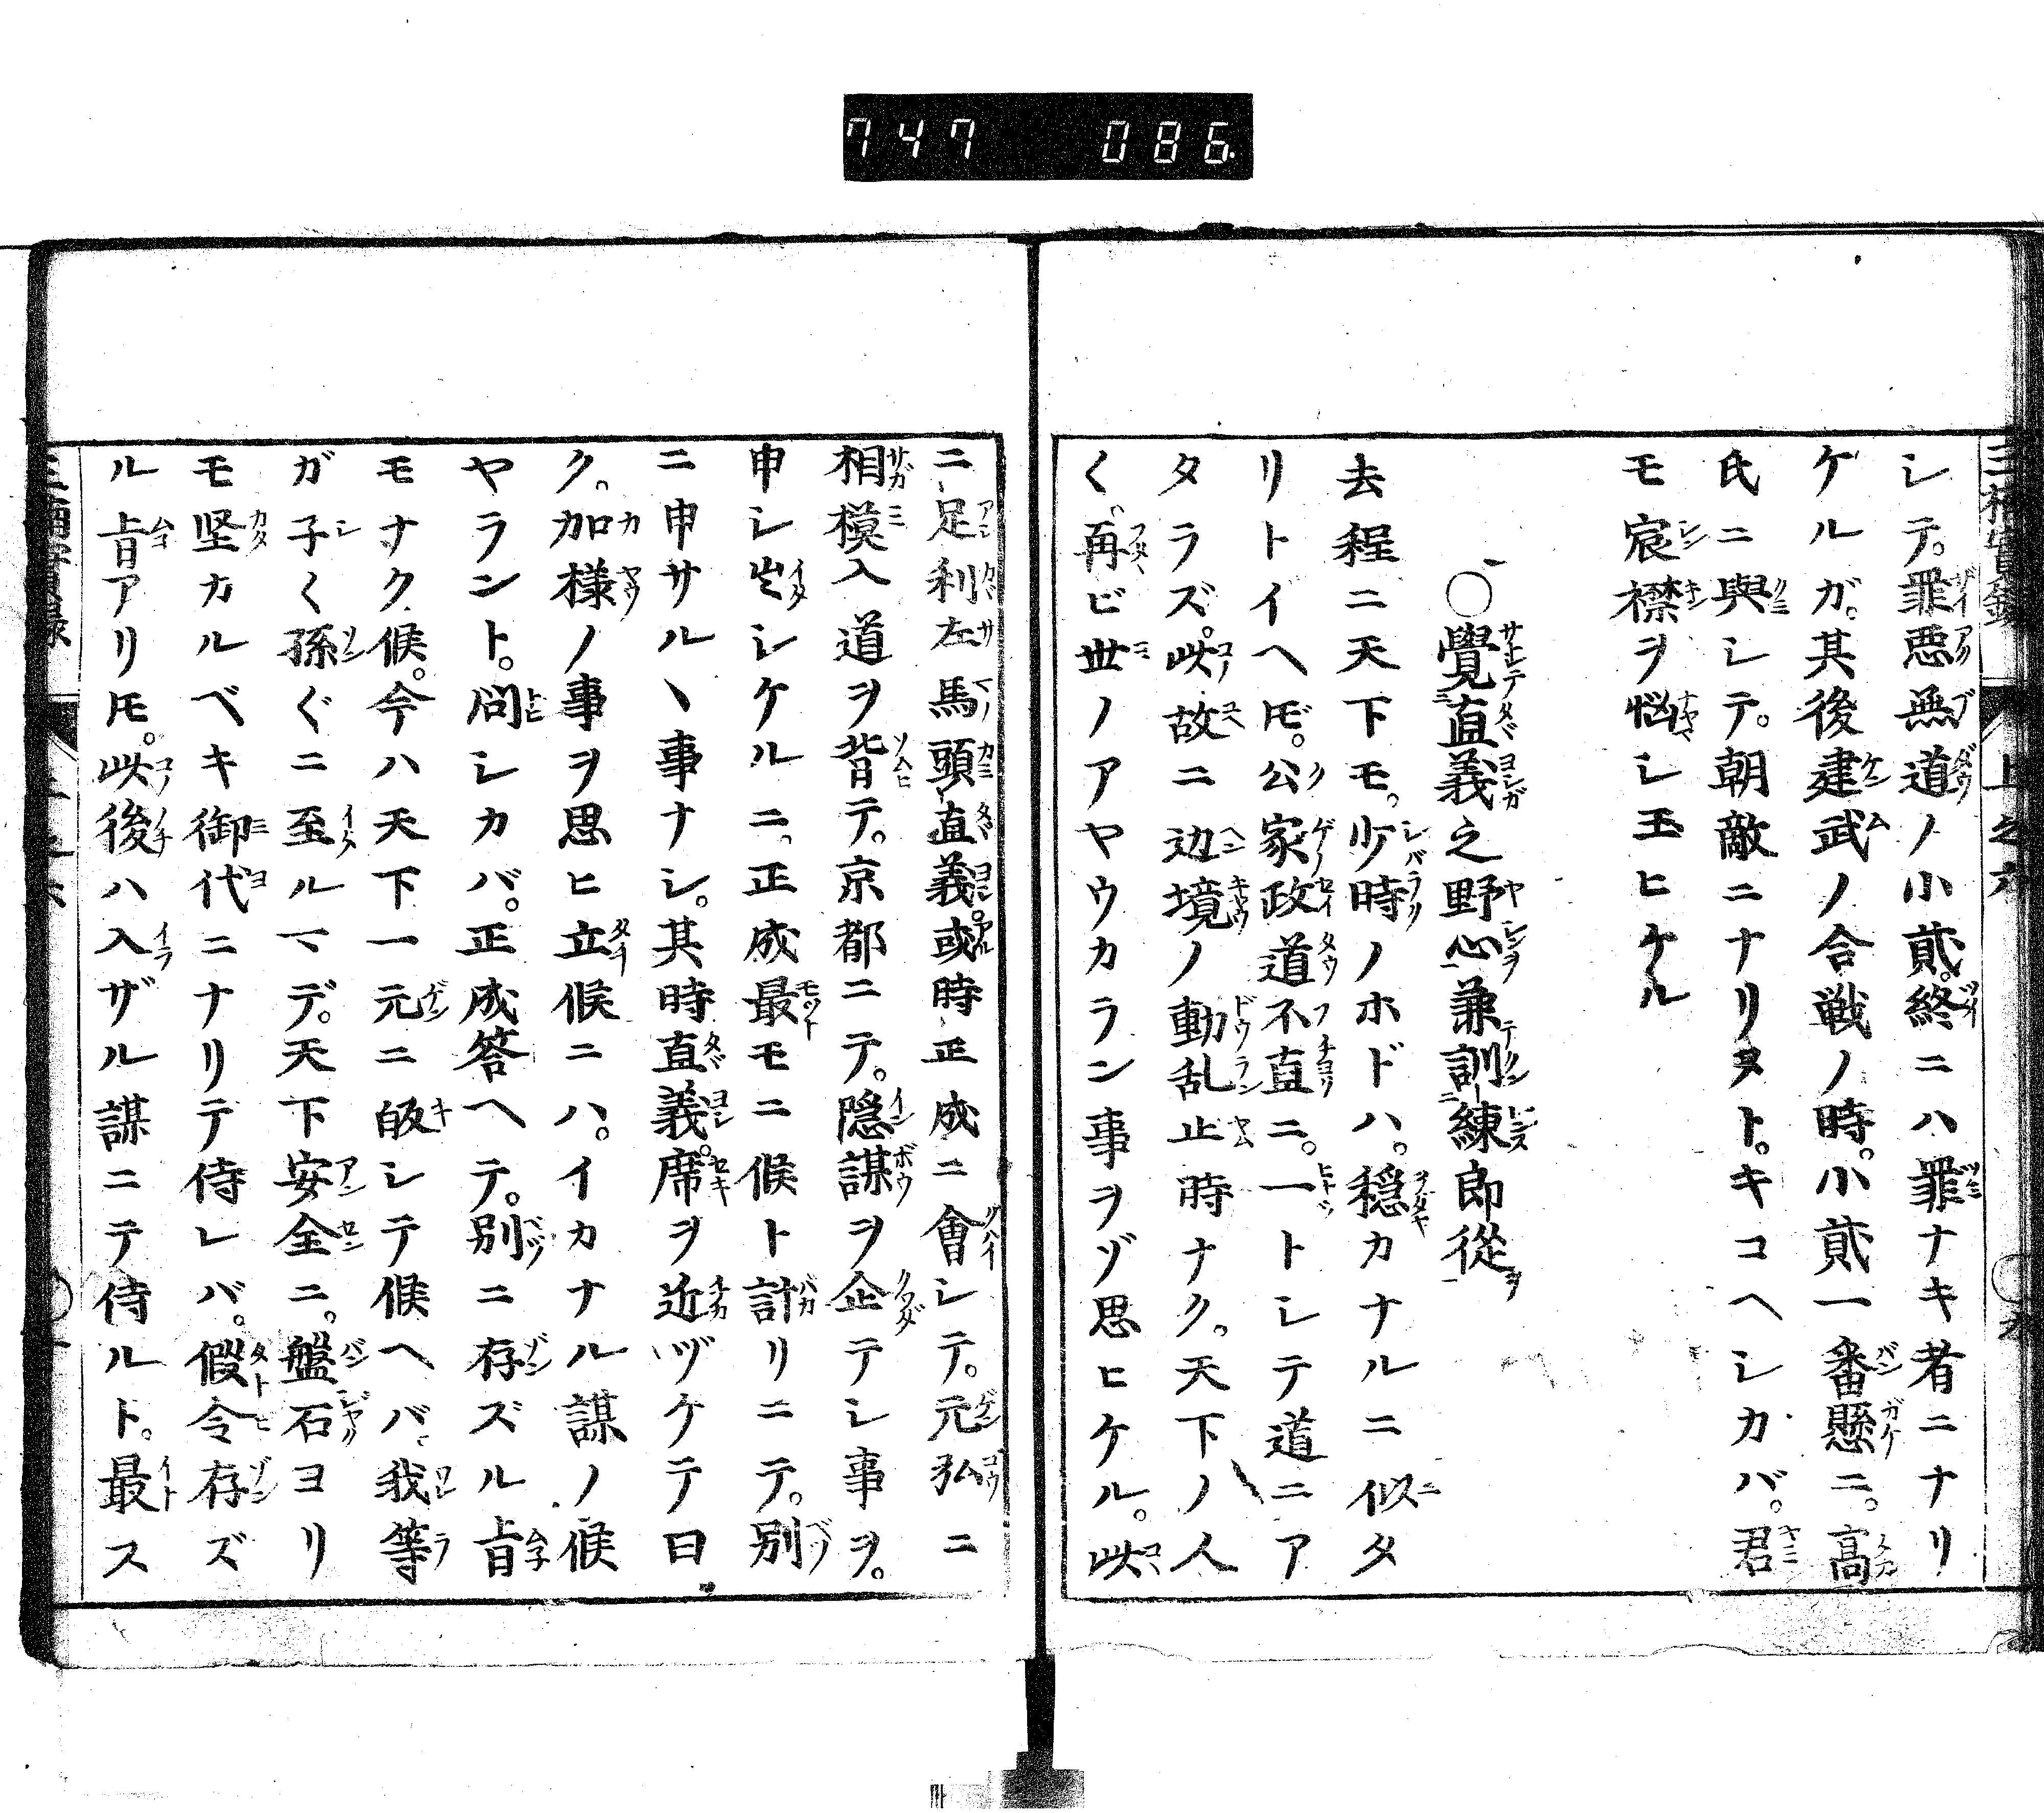 747 086
シテ。罪悪無道ノ小貳。終ニハ罪ナキ者ニナリ
ケルガ。其後建武ノ合戦ノ時。小貳一番懸ニ。高
氏ニ與シテ。朝敵ニナリヌト。キコヘシカバ。君
モ宸襟ヲ悩シ玉ヒケル
○覺直義之野心兼訓練郎從
去程ニ天下モ。少時ノホドハ。穏カナルニ似タ
リトイヘ𪜈。公家政道不直ニ。一トシテ道ニア
タラズ。此故ニ辺境ノ動乱止時ナク。天下ノ人
〱。再ビ世ノアヤウカラン事ヲゾ思ヒケル。此
ニ足利左馬頭直義。或時正成ニ會シテ。元弘ニ
相模入道ヲ背テ。京都ニテ。隠謀ヲ企テシ事ヲ。
申シ出シケルニ。正成最モニ候ト計リニテ。別
ニ申サルヽ事ナシ。其時直義。席ヲ近ヅケテ曰
ク。加様ノ事ヲ思ヒ立候ニハ。イカナル謀ノ候
ヤラント。問シカバ。正成答ヘテ。別ニ存ズル㫖
モナク候。今ハ天下一元ニ皈シテ候ヘバ、我等
ガ子〱孫〲ニ至ルマデ。天下安全ニ。盤石ヨリ
モ堅カルベキ御代ニナリテ侍レバ。假令存ズ
ル㫖アリ𪜈。此後ハ入ザル謀ニテ侍ルト。最ス